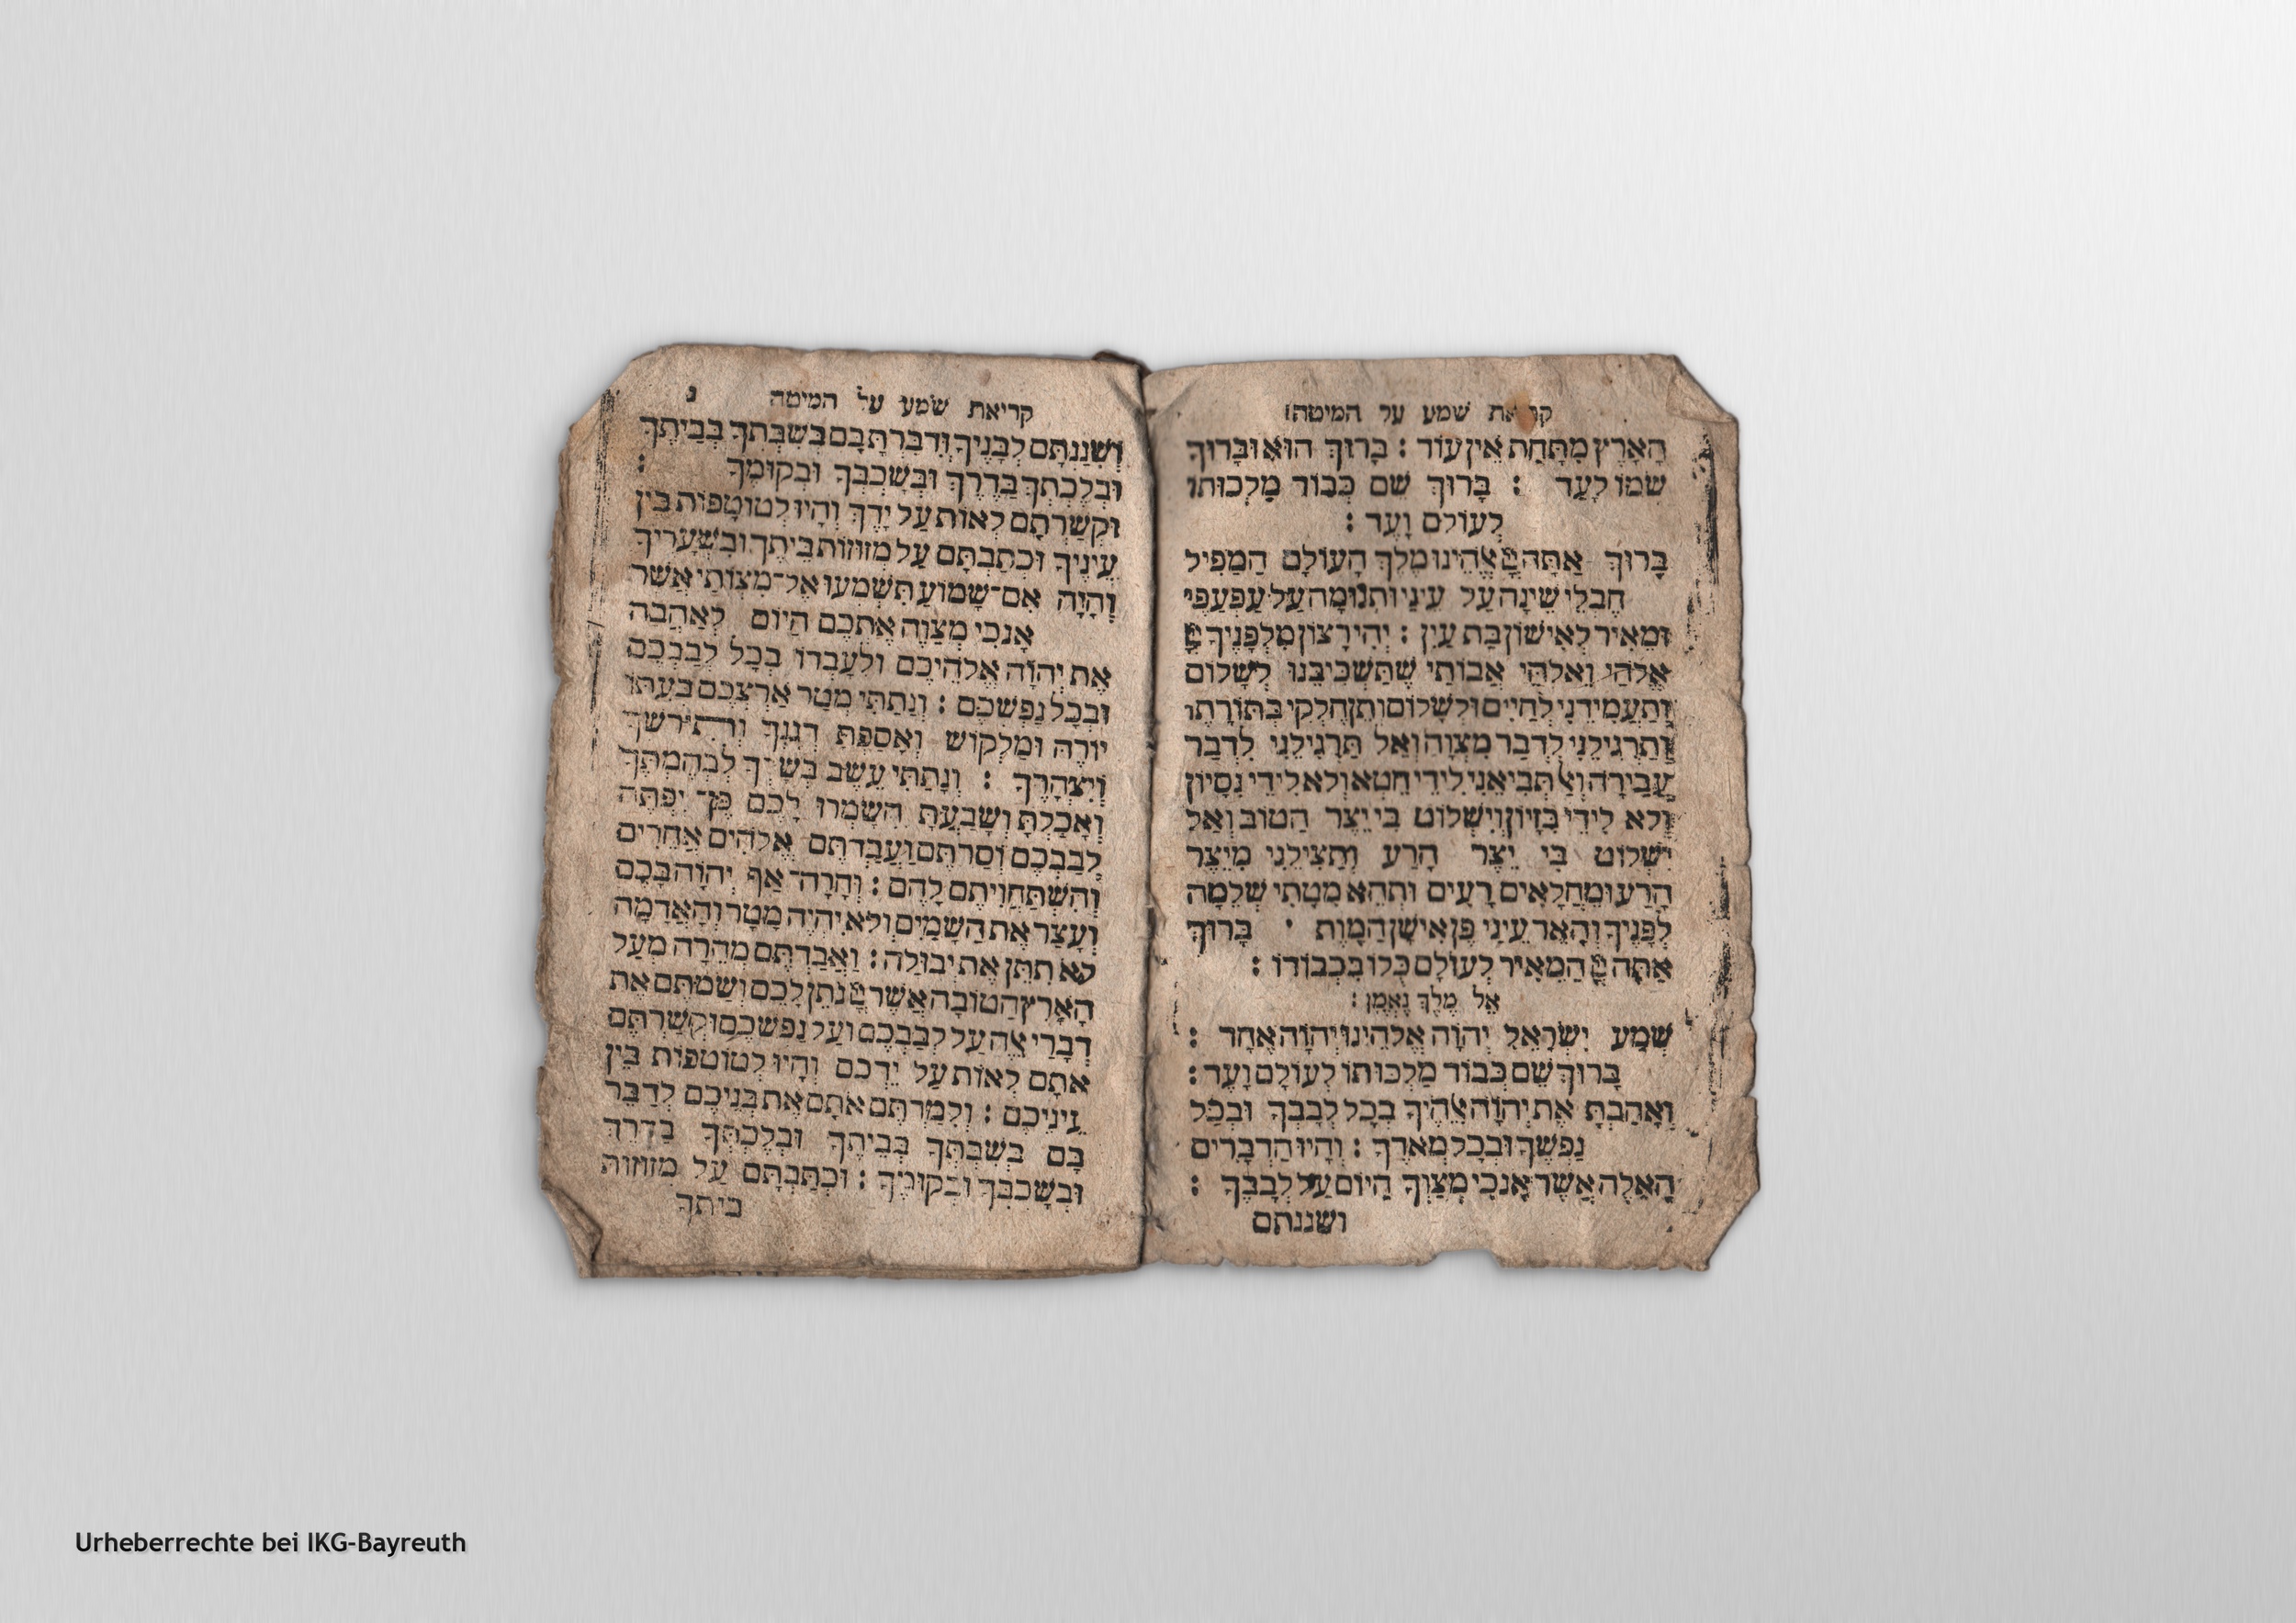 קריאת שמע על המיטה
הָאָרֶץ מִתָּחַת אֵין עוֹד : בָּרוּךְ הוּא וּבָרוּךְ
שְׁמוֹ לָעַד : בָּרוּךְ שֵׁם כְּבוֹד מַלְכוּתוֹ
לְעוֹלָם וָעֶד :
בָּרוּךְ אַתָּה אֱלֹהֵינוּ מֶלֶךְ הָעוֹלָם הַמַּפִּיל
חֶבְלֵי שֵׁינָה עַל עֵינַי וּתְנוּמָה עַל עַפְעַפַּי
וּמֵאִיר לְאִישׁוֹן בַּת עַיִן : יְהִי רָצוֹן מִלְּפָנֶיךָ
אֱלֹהַי וֵאלֹהֵי אֲבוֹתַי שֶׁתַּשְׁכִּיבֵנוּ לְשָׁלוֹם
וְתַעֲמִידֵנִי לְחַיִּים וּלְשָׁלוֹם וְתֵן חֶלְקִי בְּתוֹרָתֶךָ
וְתַרְגִּילֵנִי לִדְבַר מִצְוָה וְאַל תַּרְגִּילֵנִי לִדְבַר
עֲבֵירָה וְאַל תְּבִיאֵנִי לִידֵי חֵטְא וְלֹא לִידֵי נִסָּיוֹן
וְלֹא לִידֵי בִזָּיוֹן וְיִשְׁלוֹט בִּי יֵצֶר הַטּוֹב וְאַל
יִשְׁלוֹט בִּי יֵצֶר הָרַע וְתַצִּילֵנִי מִיֵּצֶר
הָרַע וּמֵחֳלָאִים רָעִים וּתְהֵא מִטָּתִי שְׁלֵמָה
לְפָנֶיךָ וְהָאֵר עֵינַי פֶּן אִישַׁן הַמָּוֶת · בָּרוּךְ
אַתָּה הַמֵּאִיר לְעוֹלָם כֻּלּוֹ בִּכְבוֹדוֹ :
אֵל מֶלֶךְ נֶאֱמָן :
שְׁמַע יִשְׂרָאֵל יְהוָֹה אֱלֹהֵינוּ יְהוָֹה אֶחָד :
בָּרוּךְ שֵׁם כְּבוֹד מַלְכוּתוֹ לְעוֹלָם וָעֶד :
וְאָהַבְתָּ אֶת יְהוָֹה אֱלֹהֶיךָ בְּכָל לְבָבְךָ וּבְכָל
נַפְשְׁךָ וּבְכָל מְאֹדֶךָ : וְהָיוּ הַדְּבָרִים
הָאֵלֶּה אֲשֶׁר אָנֹכִי מְצַוְּךָ הַיּוֹם עַל לְבָבֶךָ :
ושננתם
קריאת שמע על המיטה נ
וְשִׁנַּנְתָּם לְבָנֶיךָ וְדִבַּרְתָּ בָּם בְּשִׁבְתְּךָ בְּבֵיתֶךָ
וּבְלֶכְתְּךָ בַדֶּרֶךְ וּבְשָׁכְבְּךָ וּבְקוּמֶךָ :
וּקְשַׁרְתָּם לְאוֹת עַל יָדֶךָ וְהָיוּ לְטוֹטָפוֹת בֵּין
עֵינֶיךָ וּכְתַבְתָּם עַל מְזוּזוֹת בֵּיתֶךָ וּבִשְׁעָרֶיךָ
וְהָיָה אִם־שָׁמוֹעַ תִּשְׁמְעוּ אֶל־מִצְוֹתַי אֲשֶׁר
אָנֹכִי מְצַוֶּה אֶתְכֶם הַיּוֹם לְאַהֲבָה
אֶת יְהוָֹה אֱלֹהֵיכֶם וּלְעָבְדוֹ בְּכָל לְבַבְכֶם
וּבְכָל נַפְשְׁכֶם : וְנָתַתִּי מְטַר אַרְצְכֶם בְּעִתּוֹ
יוֹרֶה וּמַלְקוֹשׁ וְאָסַפְתָּ דְגָנֶךָ וְתִירֹשְׁךָ
וְיִצְהָרֶךָ : וְנָתַתִּי עֵשֶׂב בְּשָׂדְךָ לִבְהֶמְתֶּךָ
וְאָכַלְתָּ וְשָׂבָעְתָּ הִשָּׁמְרוּ לָכֶם פֶּן־ יִפְתֶּה
לְבַבְכֶם וְסַרְתֶּם וַעֲבַדְתֶּם אֱלֹהִים אֲחֵרִים
וְהִשְׁתַּחֲוִיתֶם לָהֶם : וְחָרָה־ אַף יְהוָֹה בָּכֶם
וְעָצַר אֶת הַשָּׁמַיִם וְלֹא יִהְיֶה מָטָר וְהָאֲדָמָה
לֹא תִתֵּן אֶת יְבוּלָהּ : וַאֲבַדְתֶּם מְהֵרָה מֵעַל
הָאָרֶץ הַטּוֹבָה אֲשֶׁר נֹתֵן לָכֶם וְשַׂמְתֶּם אֶת
דְּבָרַי אֵלֶּה עַל לְבַבְכֶם וְעַל נַפְשְׁכֶם וּקְשַׁרְתֶּם
אֹתָם לְאוֹת עַל יֶדְכֶם וְהָיוּ לְטוֹטָפוֹת בֵּין
עֵינֵיכֶם : וְלִמַּדְתֶּם אֹתָם אֶת בְּנֵיכֶם לְדַבֵּר
בָּם בְּשִׁבְתְּךָ בְּבֵיתֶךָ וּבְלֶכְתְּךָ בַדֶּרֶךְ
וּבְשָׁכְבְּךָ וּבְקוּמֶךָ : וּכְתַבְתָּם עַל מְזוּזוֹת
ביתך
Urheberrechte bei IKG-Bayreuth